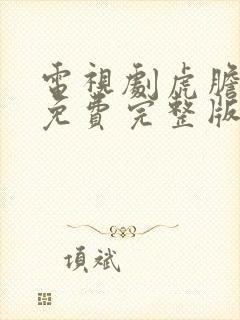 電視劇虎膽
免費完整版
項斌